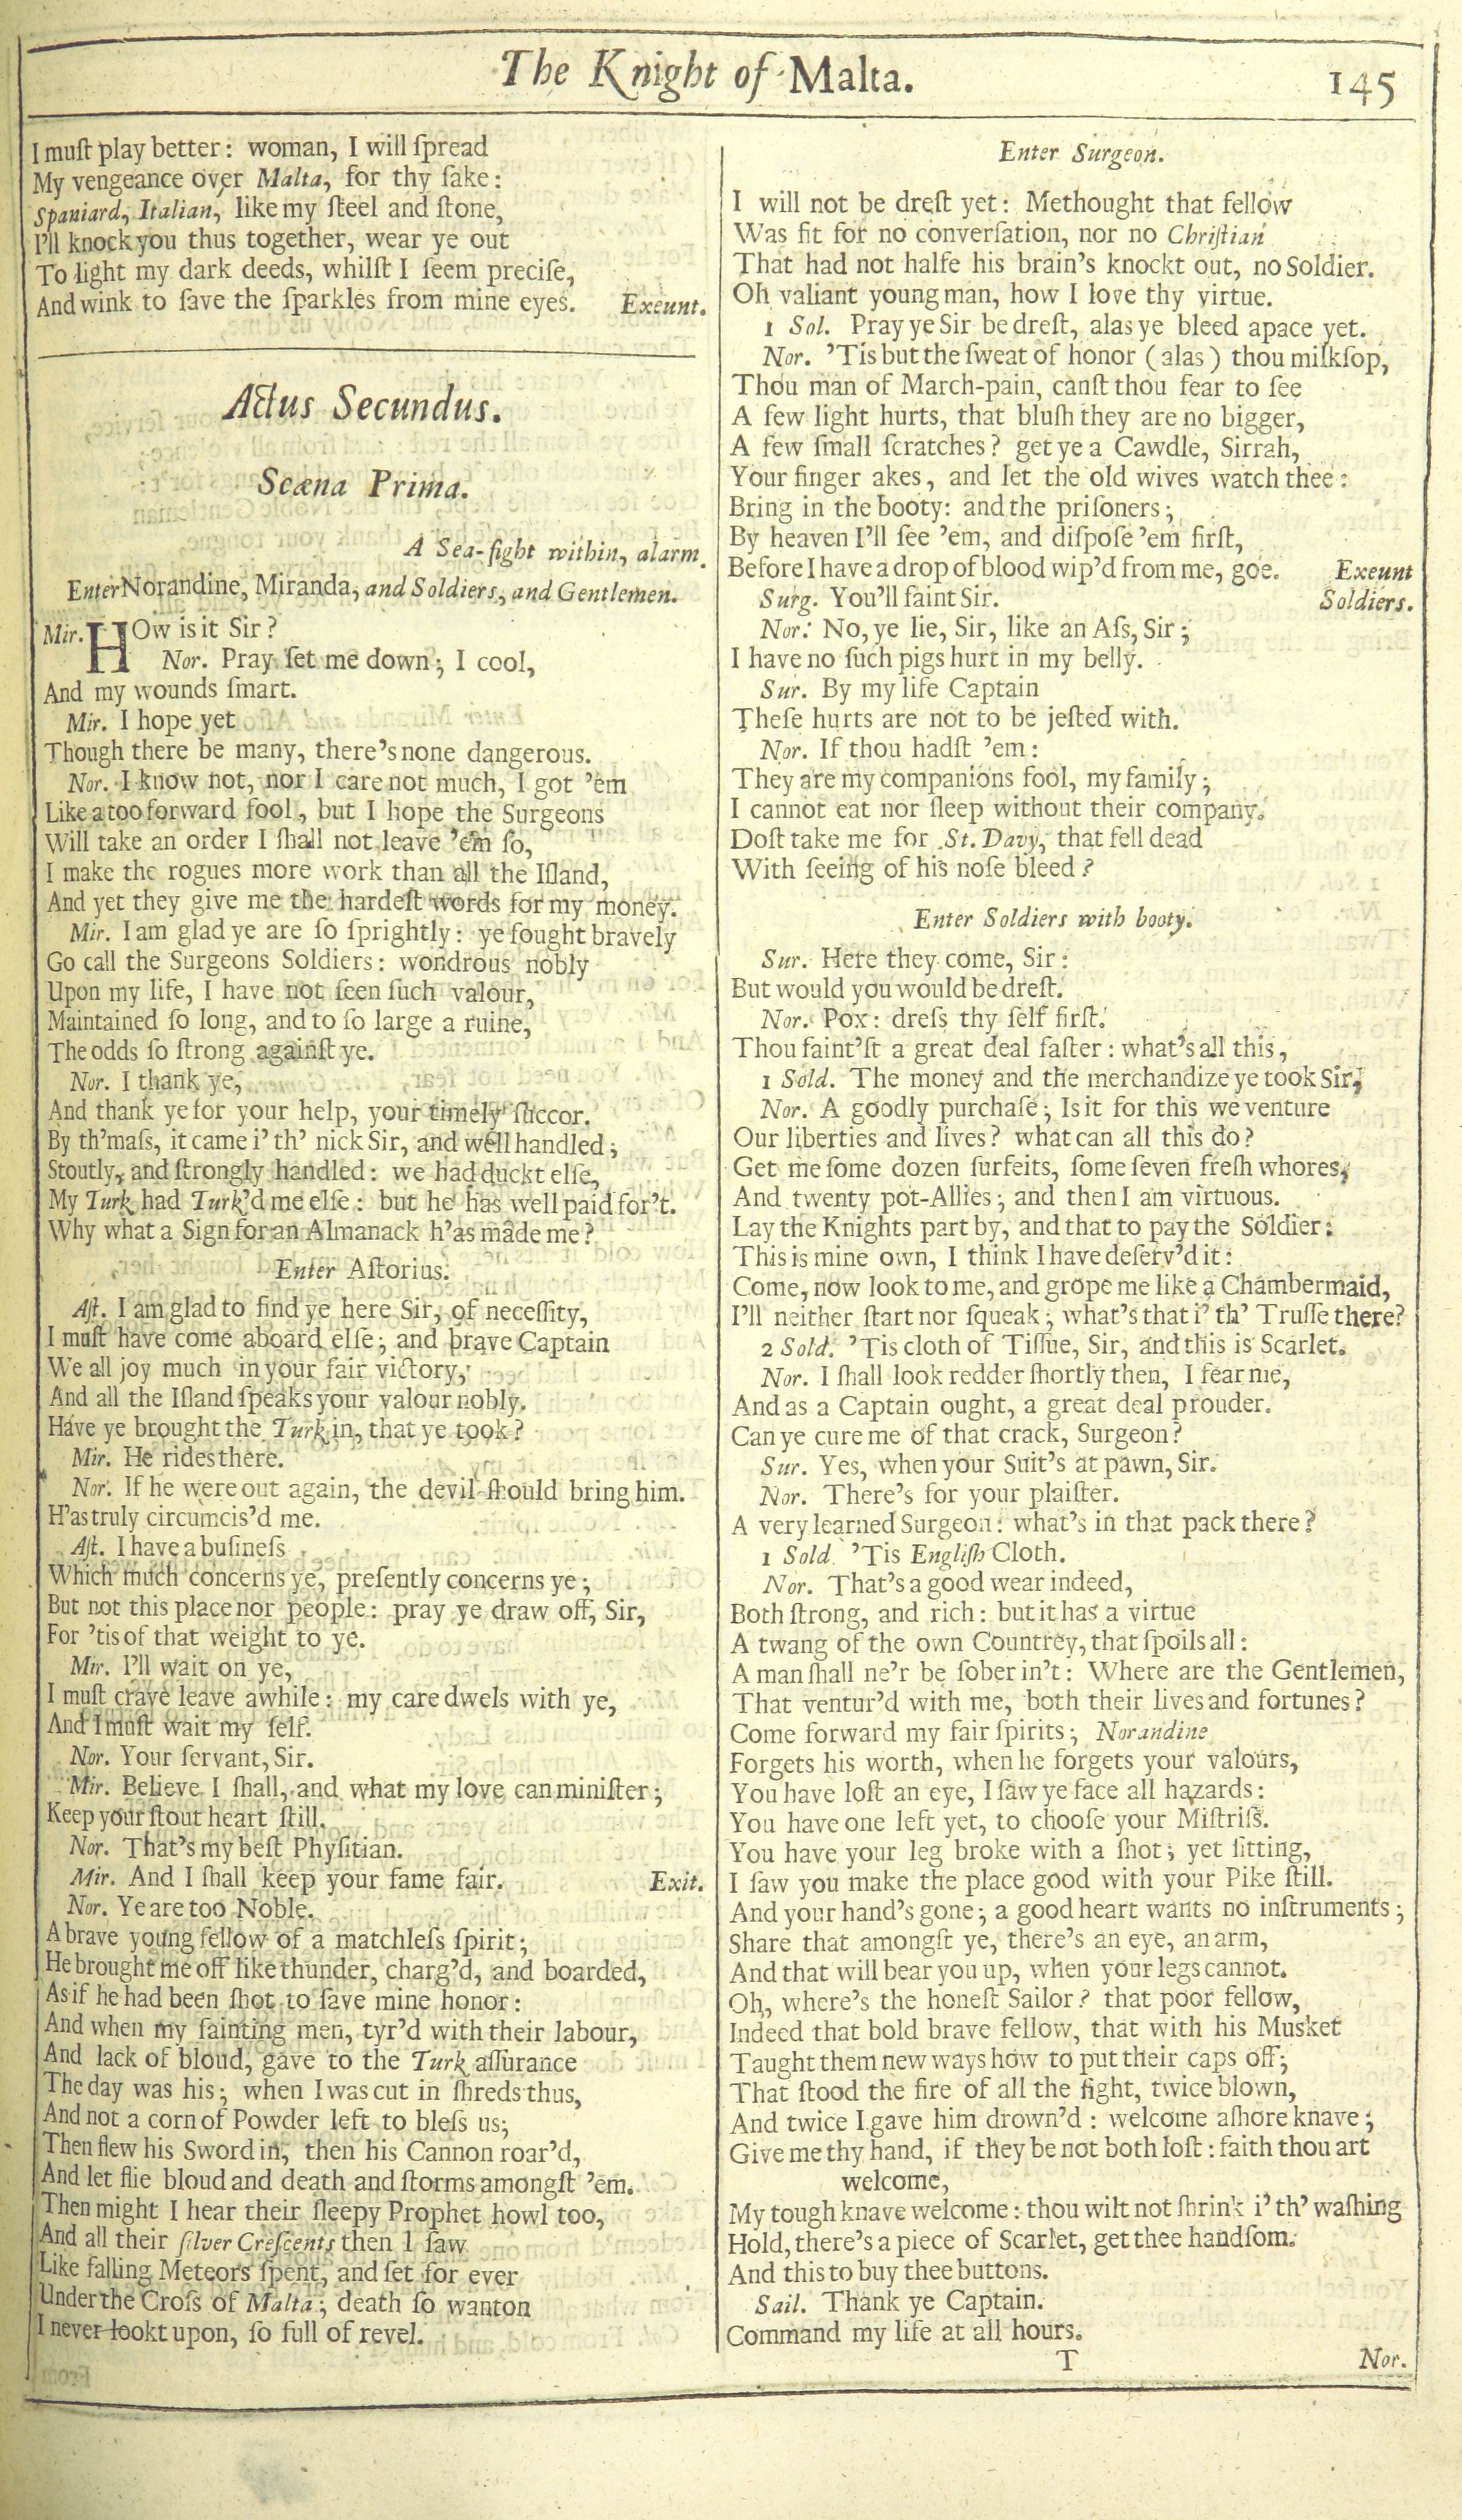 The Knight of Malta.
145
I muſt play better: woman, I will ſpread
My vengeance over Malta, for thy ſake:
Spaniard, Italian, like my ſteel and ſtone,
I'll knock you thus together, wear ye out
To light my dark deeds, whilſt I ſeem preciſe,
And wink to ſave the ſparkles from mine eyes. Exeunt.
Actus Secundus.
Scæna Prima.
A Sea-fight within, alarm.
Enter Norandine, Miranda, and Soldiers, and Gentlemen.
Mir. HOw is it Sir?
Nor. Pray ſet me down; I cool,
And my wounds ſmart.
Mir. I hope yet
Though there be many, there's none dangerous.
Nor. I know not, nor I care not much, I got 'em
Like a too forward fool, but I hope the Surgeons
Will take an order I ſhall not leave 'em ſo,
I make the rogues more work than all the Iſland,
And yet they give me the hardeſt words for my money.
Mir. I am glad ye are ſo ſprightly: ye fought bravely
Go call the Surgeons Soldiers: wondrous nobly
Upon my life, I have not ſeen ſuch valour,
Maintained ſo long, and to ſo large a ruine,
The odds ſo ſtrong againſt ye.
Nor. I thank ye,
And thank ye for your help, your timely ſuccor.
By th'maſs, it came i' th' nick Sir, and well handled;
Stoutly, and ſtrongly handled: we had duckt elſe,
My Turk had Turk'd me elſe: but he has well paid for't.
Why what a Sign for an Almanack h'as made me?
Enter Aſtorius.
Aſt. I am glad to find ye here Sir, of neceſſity,
I muſt have come aboard elſe; and brave Captain
We all joy much in your fair victory,
And all the Iſland ſpeaks your valour nobly.
Have ye brought the Turk in, that ye took?
Mir. He rides there.
Nor. If he were out again, the devil ſhould bring him.
H'as truly circumcis'd me.
Aſt. I have a buſineſs
Which much concerns ye, preſently concerns ye;
But not this place nor people: pray ye draw off, Sir,
For 'tis of that weight to ye.
Mir. I'll wait on ye,
I muſt crave leave awhile: my care dwels with ye,
And I muſt wait my ſelf.
Nor. Your ſervant, Sir.
Mir. Believe I ſhall, and what my love can miniſter;
Keep your ſtout heart ſtill.
Nor. That's my beſt Phyſitian.
Mir. And I ſhall keep your fame fair. Exit.
Nor. Ye are too Noble.
A brave young fellow of a matchleſs ſpirit;
He brought me off like thunder, charg'd, and boarded,
As if he had been ſhot to ſave mine honor:
And when my fainting men, tyr'd with their labour,
And lack of bloud, gave to the Turk aſſurance
The day was his; when I was cut in ſhreds thus,
And not a corn of Powder left to bleſs us;
Then flew his Sword in, then his Cannon roar'd,
And let flie bloud and death and ſtorms amongſt 'em.
Then might I hear their ſleepy Prophet howl too,
And all their ſilver Creſcents then I ſaw
Like falling Meteors ſpent, and ſet for ever
Under the Croſs of Malta; death ſo wanton
I never lookt upon, ſo full of revel.
Enter Surgeon.
I will not be dreſt yet: Methought that fellow
Was fit for no converſation, nor no Chriſtian
That had not halfe his brain's knockt out, no Soldier.
Oh valiant young man, how I love thy virtue.
1 Sol. Pray ye Sir be dreſt, alas ye bleed apace yet.
Nor. 'Tis but the ſweat of honor (alas) thou milkſop,
Thou man of March-pain, canſt thou fear to ſee
A few light hurts, that bluſh they are no bigger,
A few ſmall ſcratches? get ye a Cawdle, Sirrah,
Your finger akes, and let the old wives watch thee:
Bring in the booty: and the priſoners;
By heaven I'll ſee 'em, and diſpoſe 'em firſt,
Before I have a drop of blood wip'd from me, goe. Exeunt
Surg. You'll faint Sir. Soldiers.
Nor. No, ye lie, Sir, like an Aſs, Sir;
I have no ſuch pigs hurt in my belly.
Sur. By my life Captain
Theſe hurts are not to be jeſted with.
Nor. If thou hadſt 'em:
They are my companions fool, my family;
I cannot eat nor ſleep without their company.
Doſt take me for St. Davy, that fell dead
With ſeeing of his noſe bleed?
Enter Soldiers with booty.
Sur. Here they come, Sir:
But would you would be dreſt.
Nor. Pox: dreſs thy ſelf firſt.
Thou faint'ſt a great deal faſter: what's all this,
1 Sold. The money and the merchandize ye took Sir,
Nor. A goodly purchaſe; Is it for this we venture
Our liberties and lives? what can all this do?
Get me ſome dozen ſurfeits, ſome ſeven freſh whores,
And twenty pot-Allies; and then I am virtuous.
Lay the Knights part by, and that to pay the Soldier:
This is mine own, I think I have deſerv'd it:
Come, now look to me, and grope me like a Chambermaid,
I'll neither ſtart nor ſqueak; what's that i' th' Truſſe there?
2 Sold. 'Tis cloth of Tiſſue, Sir, and this is Scarlet.
Nor. I ſhall look redder ſhortly then, I fear me,
And as a Captain ought, a great deal prouder.
Can ye cure me of that crack, Surgeon?
Sur. Yes, when your Suit's at pawn, Sir.
Nor. There's for your plaiſter.
A very learned Surgeon: what's in that pack there?
1 Sold. 'Tis Engliſh Cloth.
Nor. That's a good wear indeed,
Both ſtrong, and rich: but it has a virtue
A twang of the own Countrey, that ſpoils all:
A man ſhall ne'r be ſober in't: Where are the Gentlemen,
That ventur'd with me, both their lives and fortunes?
Come forward my fair ſpirits; Norandine
Forgets his worth, when he forgets your valours,
You have loſt an eye, I ſaw ye face all hazards:
You have one left yet, to chooſe your Miſtriſs.
You have your leg broke with a ſhot; yet ſitting,
I ſaw you make the place good with your Pike ſtill.
And your hand's gone; a good heart wants no inſtruments;
Share that amongſt ye, there's an eye, an arm,
And that will bear you up, when your legs cannot.
Oh, where's the honeſt Sailor? that poor fellow,
Indeed that bold brave fellow, that with his Musket
Taught them new ways how to put their caps off;
That ſtood the fire of all the fight, twice blown,
And twice I gave him drown'd: welcome aſhore knave;
Give me thy hand, if they be not both loſt: faith thou art
welcome,
My tough knave welcome: thou wilt not ſhrink i' th' waſhing
Hold, there's a piece of Scarlet, get thee handſom.
And this to buy thee buttons.
Sail. Thank ye Captain.
Command my life at all hours.
T
Nor.